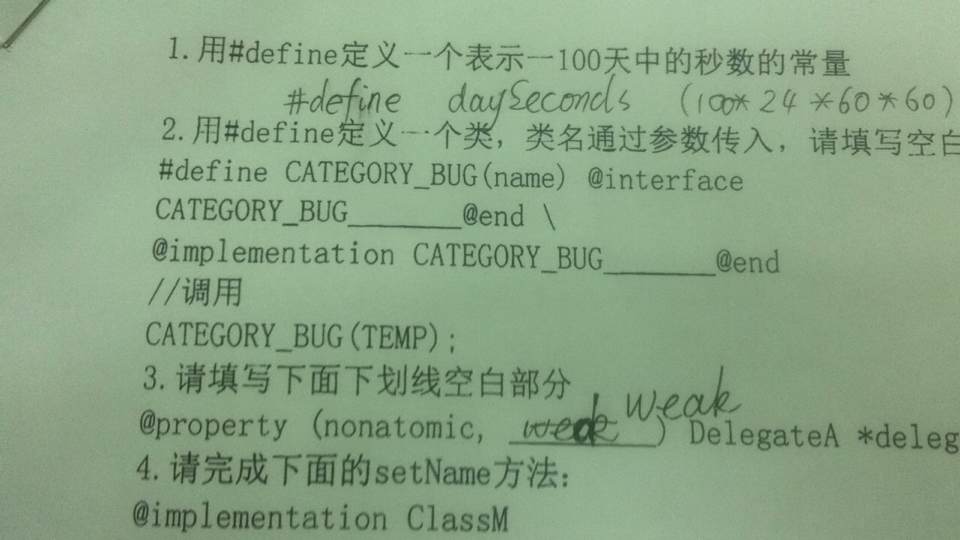 1. 用#define定义一个表示一100天中的秒数的常量
#define daySeconds (100*24*60*60)
2. 用#define定义一个类，类名通过参数传入，请填写空白
#define CATEGORY_BUG(name) @interface
CATEGORY_BUG______@end \
@implementation CATEGORY_BUG______@end
//调用
CATEGORY_BUG(TEMP);
3. 请填写下面下划线空白部分
weak
@property (nonatomic, weak) DelegateA *deleg
4. 请完成下面的setName方法:
@implementation ClassM